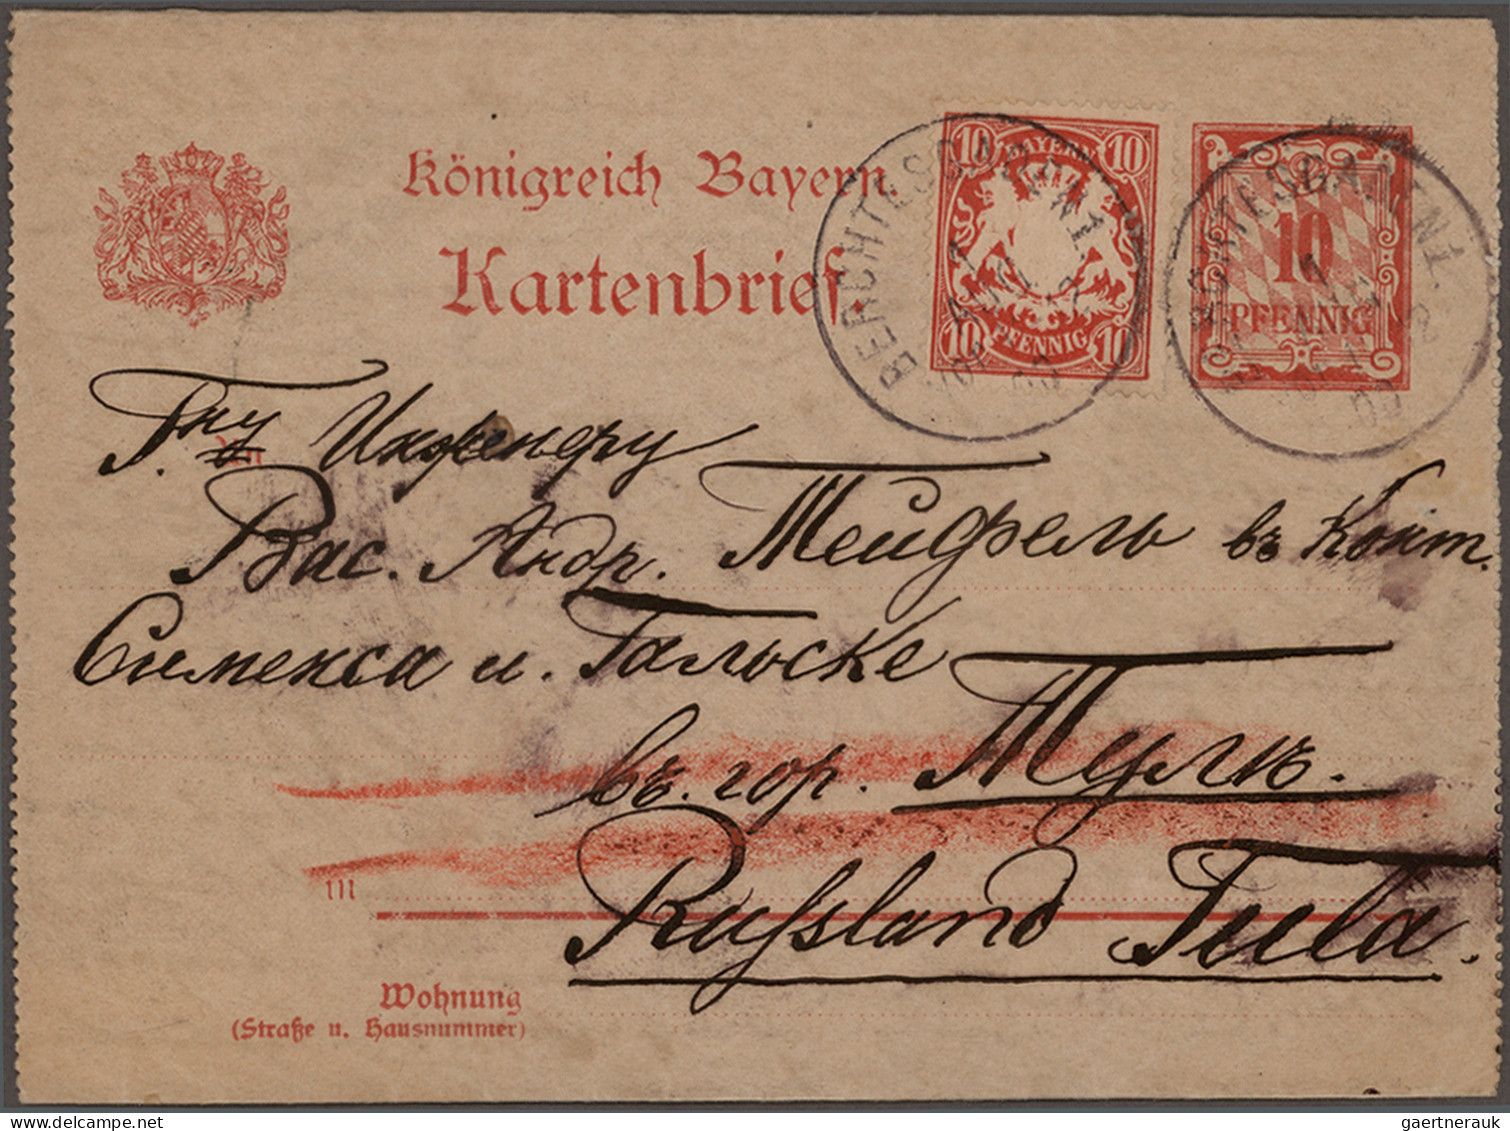 Königreich Bayern
Kartenbrief
10 10
BAYERN
10 PFENNIG 10
BERCHTESGADEN 1.
10
PFENNIG
BERCHTESGADEN 1.
An
Г-ну Инженеру
Вас. Андр. Тейфель въ Конт.
Сименса и. Гальске
въ. гор. Тулѣ.
in
Russland Tula.
Wohnung
(Straße u. Hausnummer)
gaertnerauk